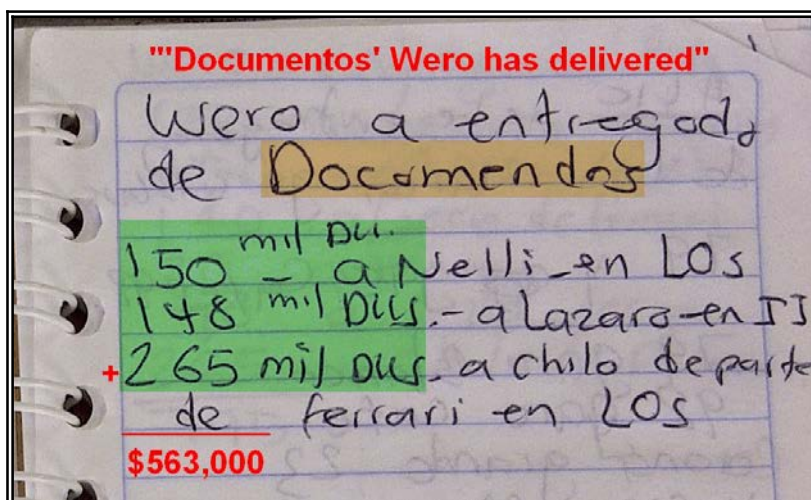 "'Documentos' Wero has delivered"
Wero a entregado
de Docomendos
150 mil DLL.
- a Nelli-en LOs
148 mil DLLS.- a Lazaro-en IJ
+265 mil DLLS. a chilo de parte
de ferrari en LOs
$563,000